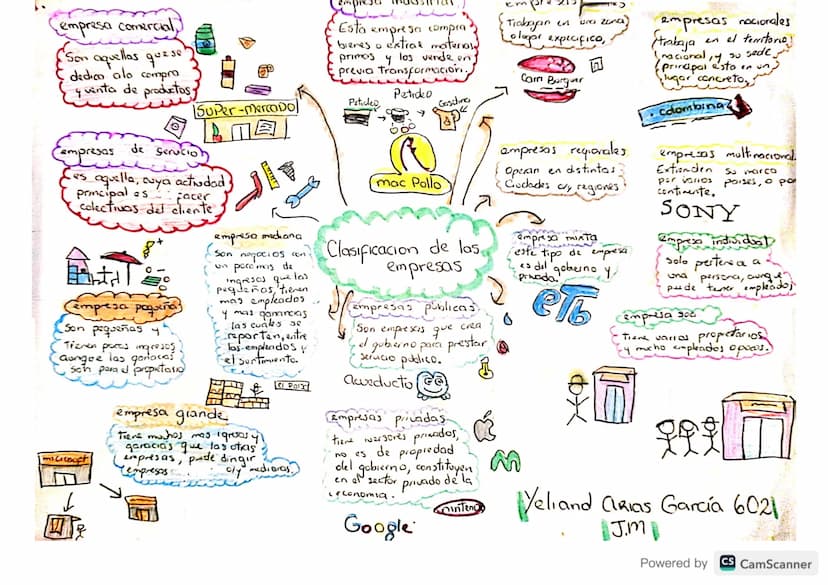 empresa comercial
Son aquellas que se
dedica a la compra
y venta de productos
SUPER-MERCADO
empresas de servicio
es aquella, cuya actividad
principal es
colectivos del cliente
empresa industrial
Esta empresa compra
bienes o extrae materias
primas y los vende en
previa transformacion.
Petroleo
Gasolina
mac Pollo
Trabajan en una zona
o lugar especifico,
Corn Burguer
empresas nacionales
trabaja en el territorio
nacional, y su sede
principal esta en un
lugar concreto,
colombina
empresas regionales
Operan en distintas
Ciudades o/y regiones
empresas multinacional
Extienden su marca
por varios paises, o por
continente,
SONY
Clasificacion de las
empresas
empresa mediana
Son negocios con
un poco mas de
ingresos que las
pequeñas, tienen
mas empleados
y mas ganancias
las cuales se
reparten, entre
los empleados y
el surtimiento.
el Paisa
empresa pequeña
Son pequeñas y
Tienen pocos ingresos
aunque las ganacias
son para el propietario
empresa mixta
este tipo de empresa
es del gobierno y
privada.
eTb
empresa individual
solo pertenece a
una persona, aunque
puede tener empleados
empresa soci
tiene varios propietarios
y mucho empleados o pocos.
empresas públicas
Son empresas que crea
el gobierno para prestar
servicio público.
Acueducto
empresa grande
tiene muchos mas igresos y
ganacias que las otras
empresas, puede dirigir
empresas o/y medianas
empresas privadas
tiene inversores privados,
no es de propiedad
del gobierno, constituyen
en el sector privado de la
economia.
nintendo
Google
Yeliand Arias García 602
J.M
Powered by CS CamScanner